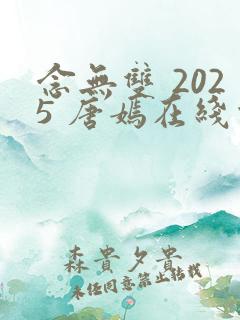 念無雙 202
5 唐嫣在綫
森貴夕貴
未經同意禁止轉載